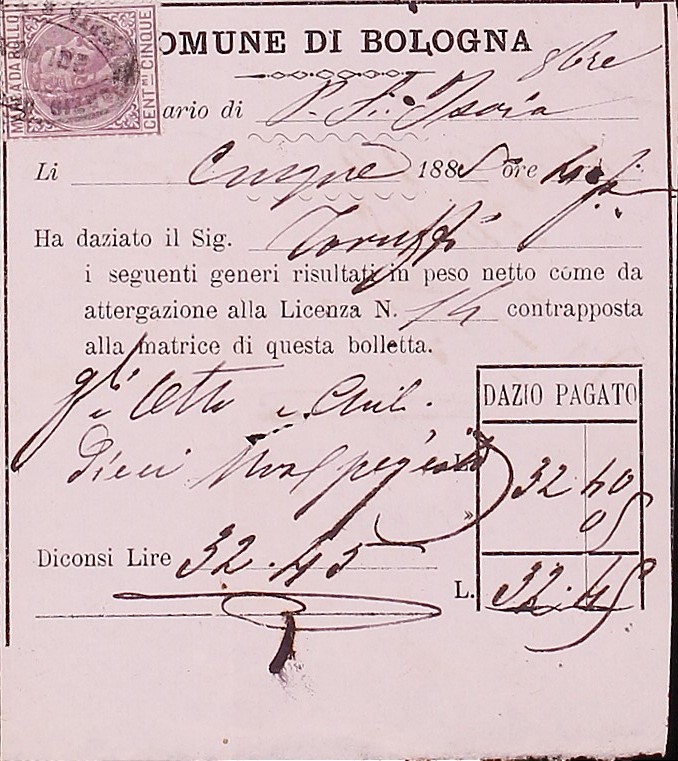 MARCA DA BOLLO
CENT.MI CINQUE
COMUNE DI BOLOGNA
8bre
ario di
Li Cinque 1885 ore
Ha daziato il Sig. Toruffi
i seguenti generi risultati in peso netto come da
attergazione alla Licenza N. 14 contrapposta
alla matrice di questa bolletta.
DAZIO PAGATO
Otto e Chil.
Dieci
L. 32 40
» 05
Diconsi Lire 32.45
L. 32.45